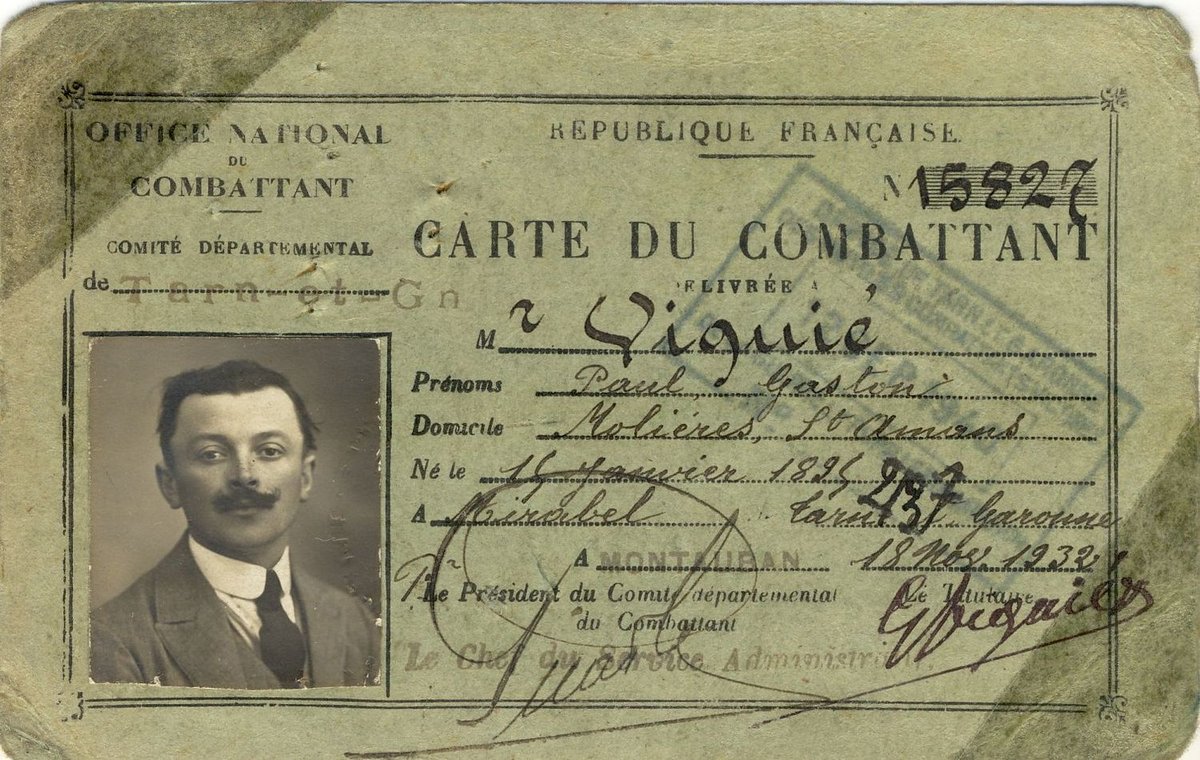 OFFICE NATIONAL
DU
COMBATTANT
COMITÉ DÉPARTEMENTAL
de Tarn-et-Gn
RÉPUBLIQUE FRANÇAISE.
N 15827
CARTE DU COMBATTANT
DÉLIVRÉE A
Mr Viguié
Prénoms Paul, Gaston
Domicile Molières, St Amans
Né le 15 Janvier 189
A Mirabel Tarn Garonne
A MONTAUBAN 18 Nov. 1932
Le Président du Comité départemental
du Combattant
Le Chef du Service Administratif.
Le Titulaire